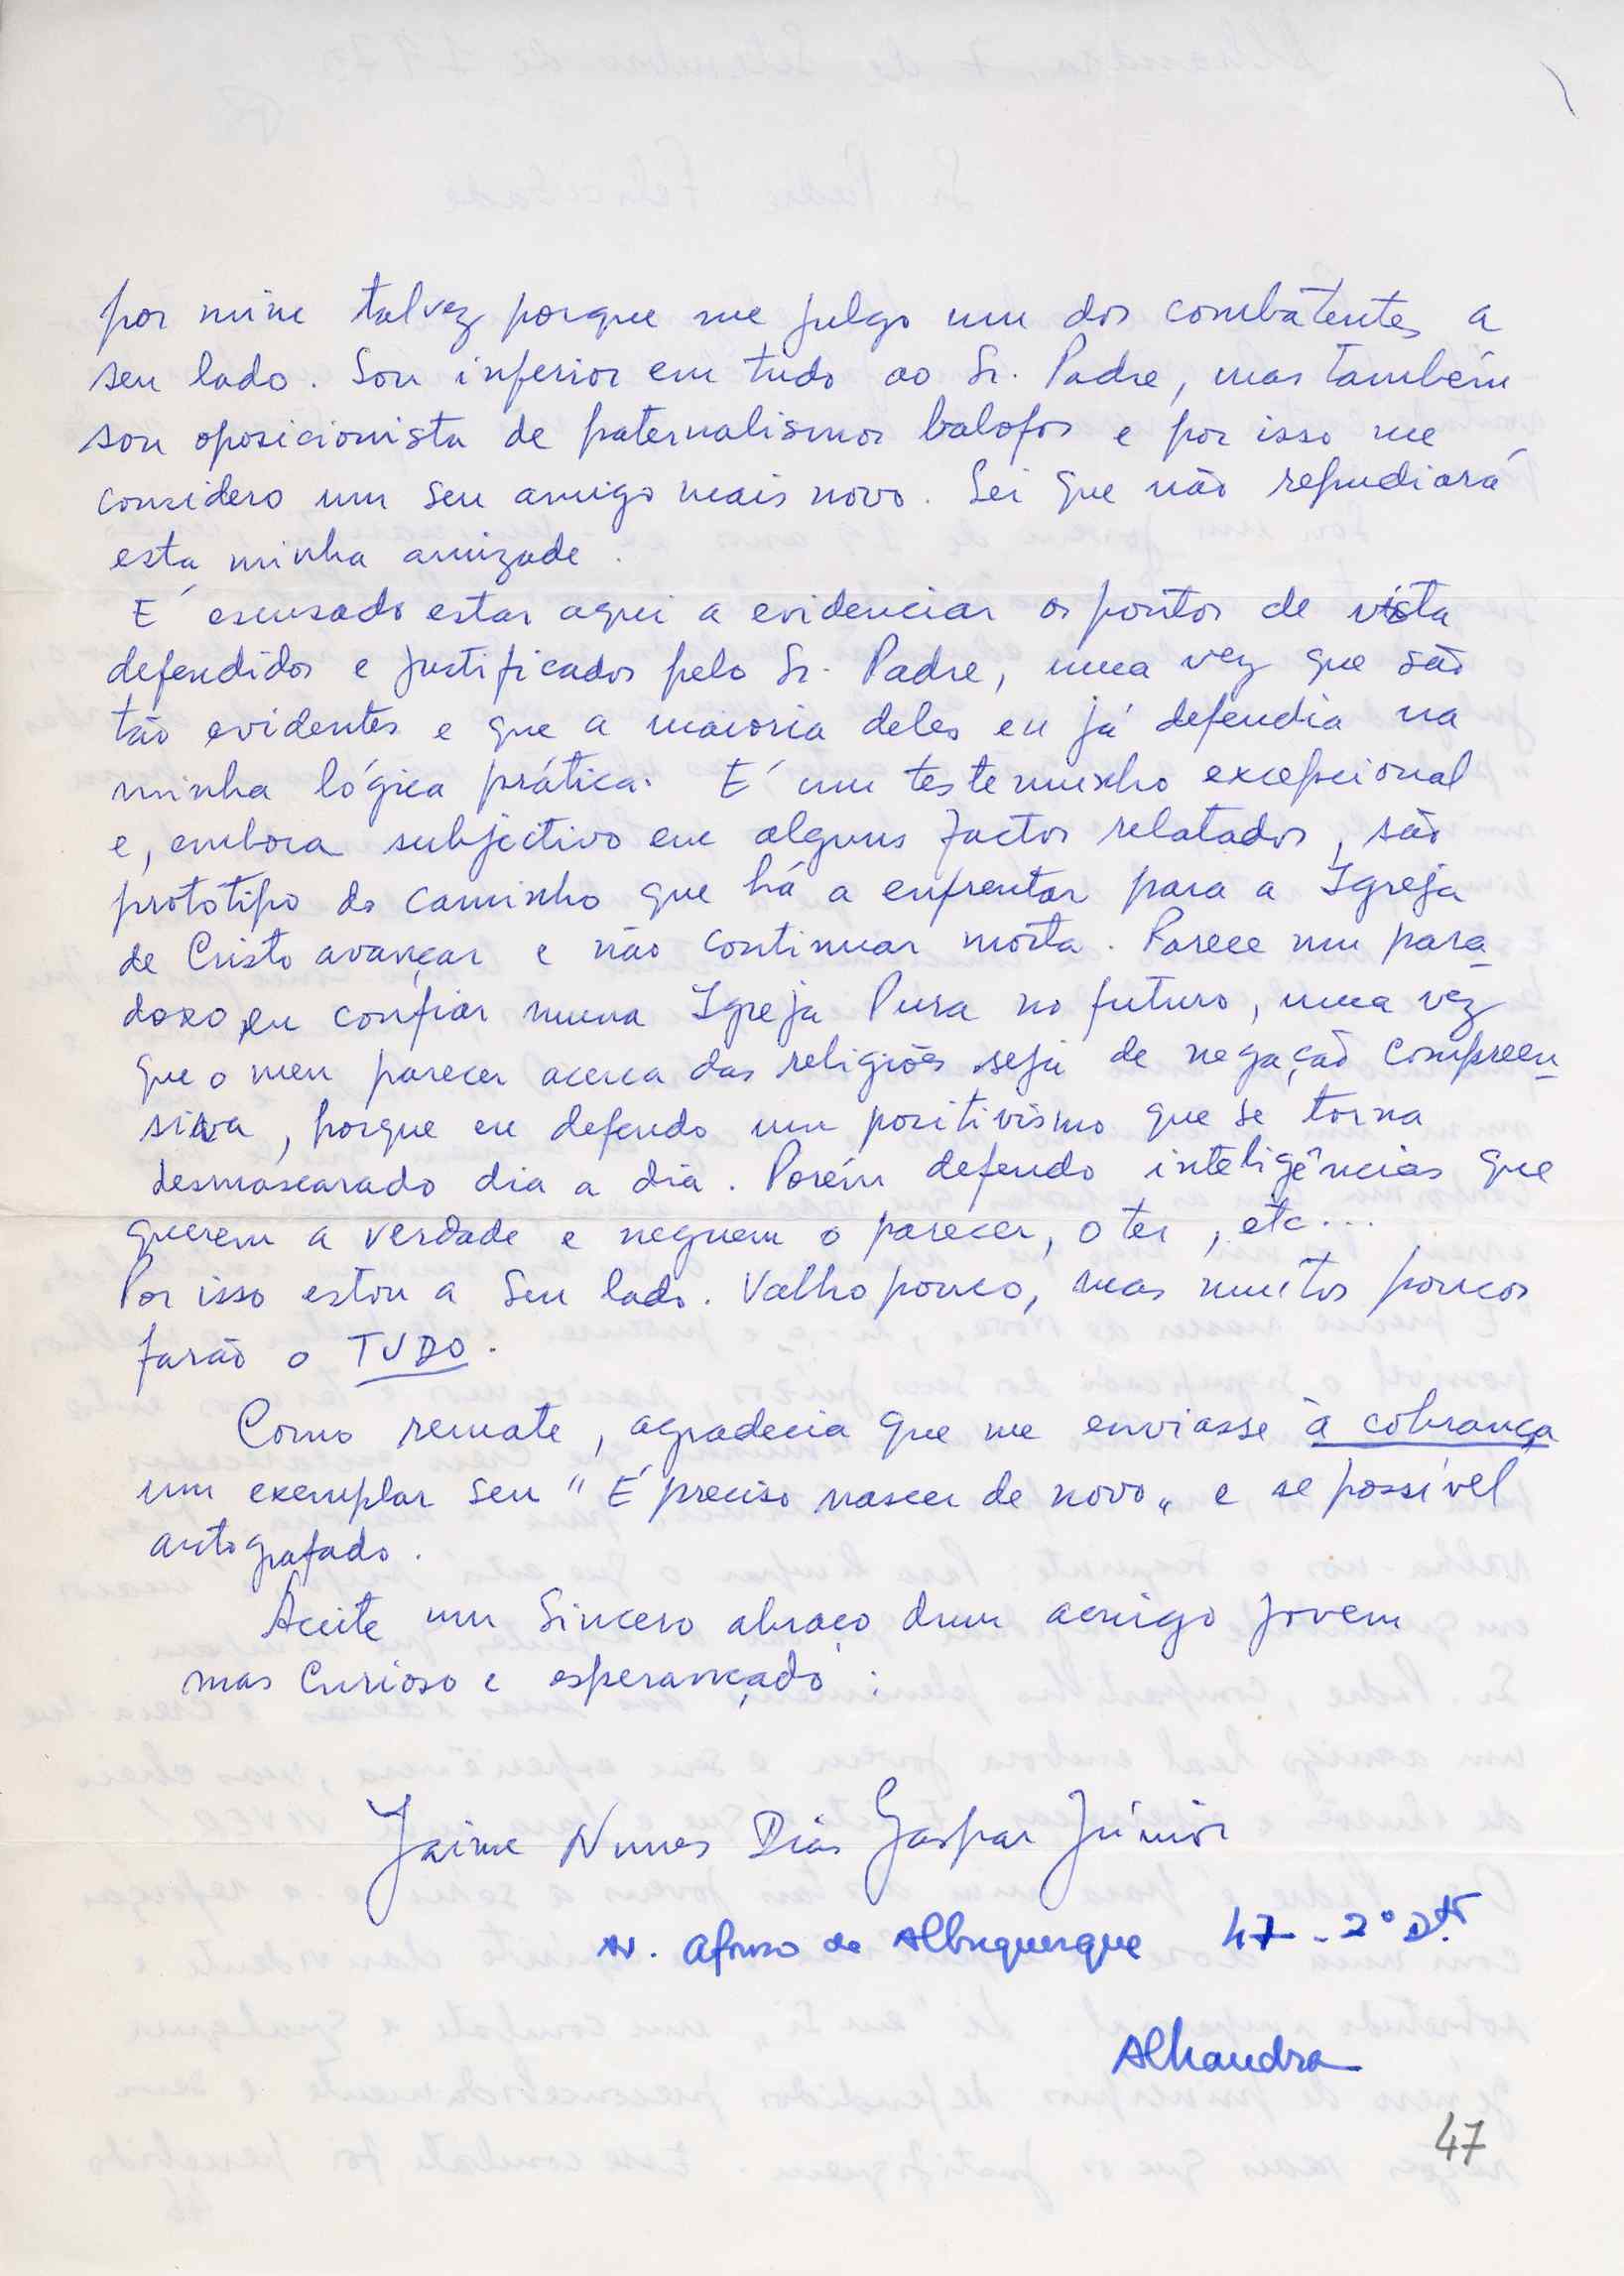 por mim talvez porque me julgo um dos combatentes a
seu lado. Sou inferior em tudo ao Sr. Padre, mas também
sou oposicionista de paternalismos balofos e por isso me
considero um seu amigo mais novo. Sei que não repudiará
esta minha amizade.
É escusado estar aqui a evidenciar os pontos de vista
defendidos e justificados pelo Sr. Padre, uma vez que são
tão evidentes e que a maioria deles eu já defendia na
minha lógica prática. É um testemunho excepcional
e, embora subjectivo em alguns factos relatados, são
protótipo do caminho que há a enfrentar para a Igreja
de Cristo avançar e não continuar morta. Parece um para-
doxo eu confiar numa Igreja Pura no futuro, uma vez
que o meu parecer acerca das religiões seja de negação compreen-
siva, porque eu defendo um positivismo que se torna
desmascarado dia a dia. Porém defendo inteligências que
querem a verdade e neguem o parecer, o ter, etc...
Por isso estou a Seu lado. Valho pouco, mas muitos poucos
farão o TUDO.
Como remate, agradecia que me enviasse à cobrança
um exemplar seu "É preciso nascer de novo" e se possível
autografado.
Aceite um Sincero abraço dum amigo jovem
mas Curioso e esperançado:
Jaime Nunes Dias Gaspar Júnior
Av. Afonso de Albuquerque 47-2º Dtº
Alhandra
47